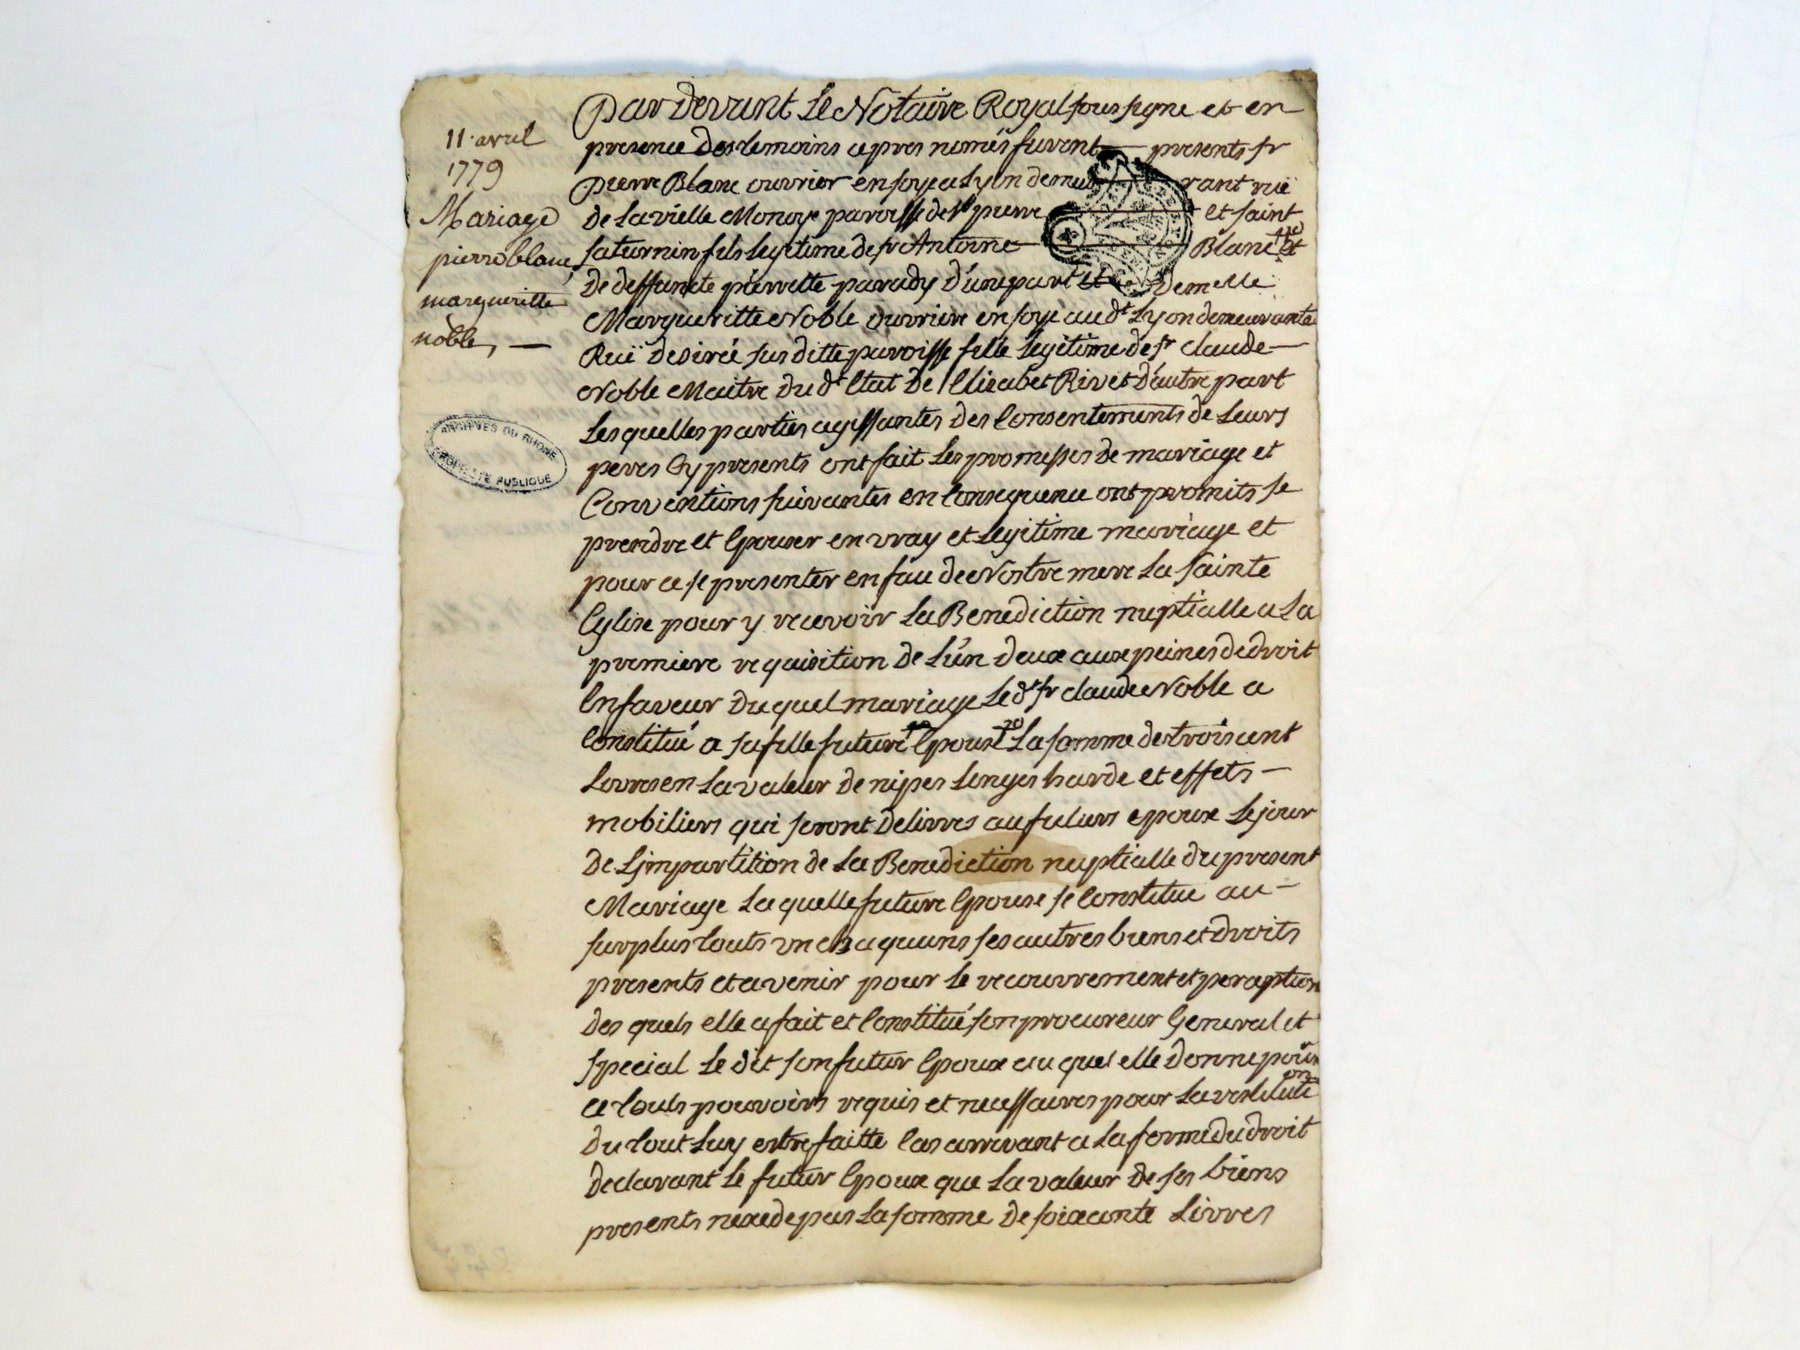 11. avril
1779
Mariage
pierre blanc
margueritte
noble,
ARCHIVES DU RHONE
PROPRIETE PUBLIQUE
Par devant Le Notaire Royal sous signe et en
presence des temoins apres només furent presents sr
pierre Blanc ouvrier en soye a Lyon demeurant ruë
de La vielle Monoye paroisse de st pierre et saint
saturnin fils legitime de sr Antoine Blanc et
de deffuncte pierrette parady d'une part Et Demelle
Margueritte Noble ouvriere en soye aud.t Lyon demeurante
Ruë desirée sus ditte paroisse fille legitime de sr claude
Noble Maitre du d.t Etat De Elisabet Rivet d'autre part
Les quelles parties agissantes des Consentements de Leurs
peres Cy presents ont fait Les promesses de mariage et
Conventions suivantes en Consequence ont promits se
prendre et Epouser en vray et Legitime mariage et
pour ce se presenter en face de Nostre mere La sainte
Eglise pour y recevoir La Benediction nuptialle a La
premiere requisition de L'un deux aux peines de droit
En faveur du quel mariage Le d.t sr claude Noble a
Constitué a sa fille future Epouse La somme de trois cent
Livres en La valeur de nipes Linges harde et effets
mobiliers qui seront delivres au futurs epoux Le jour
de L'impartition de La Benediction nuptialle du present
Mariage La quelle future Epouse se Constitue au
surplus touts un chaquuns ses autres biens et droits
presents et avenir pour Le recouvrement et perception
des quels elle a fait et Constitué son procureur General et
special Le dit son futur Epoux au quel elle donne pour
ce touts pouvoirs requis et necessaires pour La restitution
du tout Luy estre faitte Cas arrivant a La forme du droit
declarant Le futur Epoux que La valeur de ses biens
presents nexede pas La somme de soixante Livres